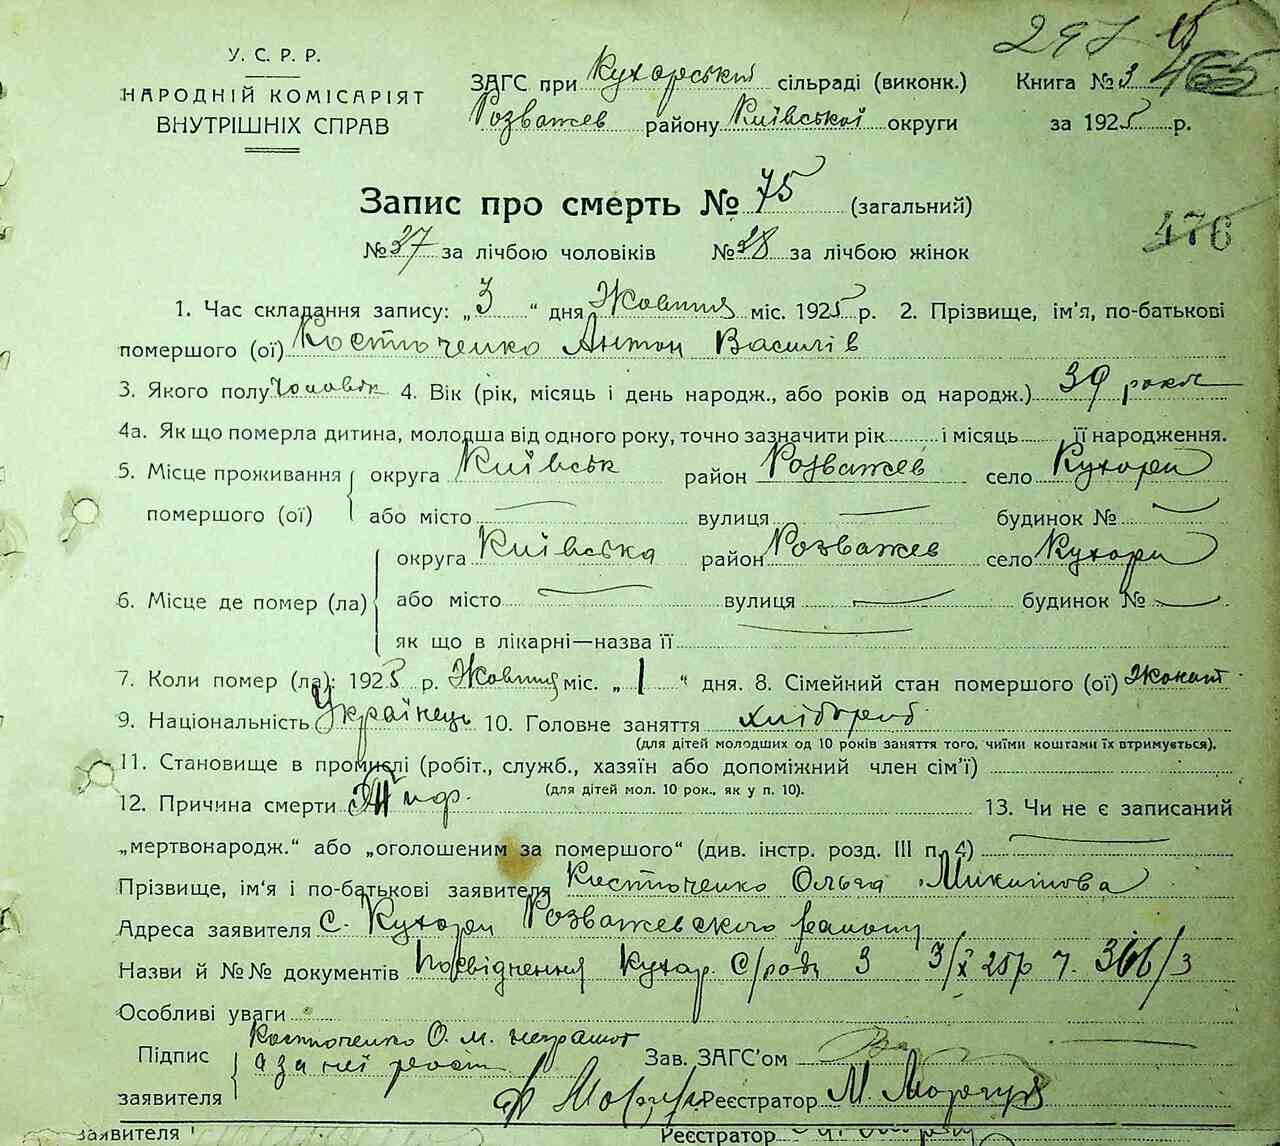 297
У. С. Р. Р.
НАРОДНІЙ КОМІСАРІЯТ
ВНУТРІШНІХ СПРАВ
ЗАГС при Кухарський сільраді (виконк.) Книга № 3 465
Розважев району Київської округи за 1925 р.
Запис про смерть № 75 (загальний)
476
№ 37 за лічбою чоловіків № 38 за лічбою жінок
1. Час складання запису: „3“ дня Жовтня міс. 1925 р. 2. Прізвище, ім'я, по-батькові
помершого (ої) Костюченко Антон Василів
3. Якого полу Чоловік 4. Вік (рік, місяць і день народж., або років од народж.) 39 років
4а. Як що померла дитина, молодша від одного року, точно зазначити рік і місяць її народження.
5. Місце проживання округа Київськ район Розважев село Кухари
помершого (ої) або місто вулиця будинок №
округа Київська район Розважев село Кухари
6. Місце де помер (ла) або місто вулиця будинок №
як що в лікарні—назва її
7. Коли помер (ла): 1925 р. Жовтня міс. „1“ дня. 8. Сімейний стан помершого (ої) Жонат
9. Національність Українець 10. Головне заняття хлібороб
(для дітей молодших од 10 років заняття того, чиїми коштами їх втримується).
11. Становище в промислі (робіт., служб., хазяїн або допоміжний член сім'ї)
(для дітей мол. 10 рок., як у п. 10).
12. Причина смерти Тиф. 13. Чи не є записаний
„мертвонародж.“ або „оголошеним за помершого“ (див. інстр. розд. III п. 4)
Прізвище, ім'я і по-батькові заявителя Костюченко Ольга Микитова
Адреса заявителя С. Кухари Розважевского району
Назви й №№ документів Посвідчення Кухар. С/ради З 3/X 25р ч. 366/3
Особливі уваги
Підпис Костюченко О. М. неграмот Зав. ЗАГС'ом
а за неї
заявителя Реєстратор М.
заявителя Реєстратор